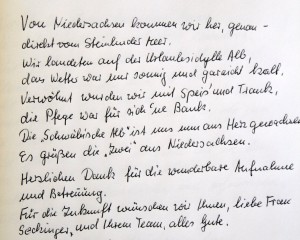 Von Niedersachsen kommen wir her, genau -
direkt vom Steinhuder Meer.
Wir landeten auf der Urlaubsidylle Alb,
das Wetter war uns sonnig und gar nicht kalt.
Verwöhnt wurden wir mit Speis' und Trank,
die Pflege war für sich 'ne Bank.
Die "Schwäbische Alb" ist uns nun ans Herz gewachsen
Es grüßen die "Zwei" aus Niedersachsen.
Herzlichen Dank für die wunderbare Aufnahme
und Betreuung.
Für die Zukunft wünschen wir Ihnen, liebe Frau
und Ihrem Team, alles Gute.